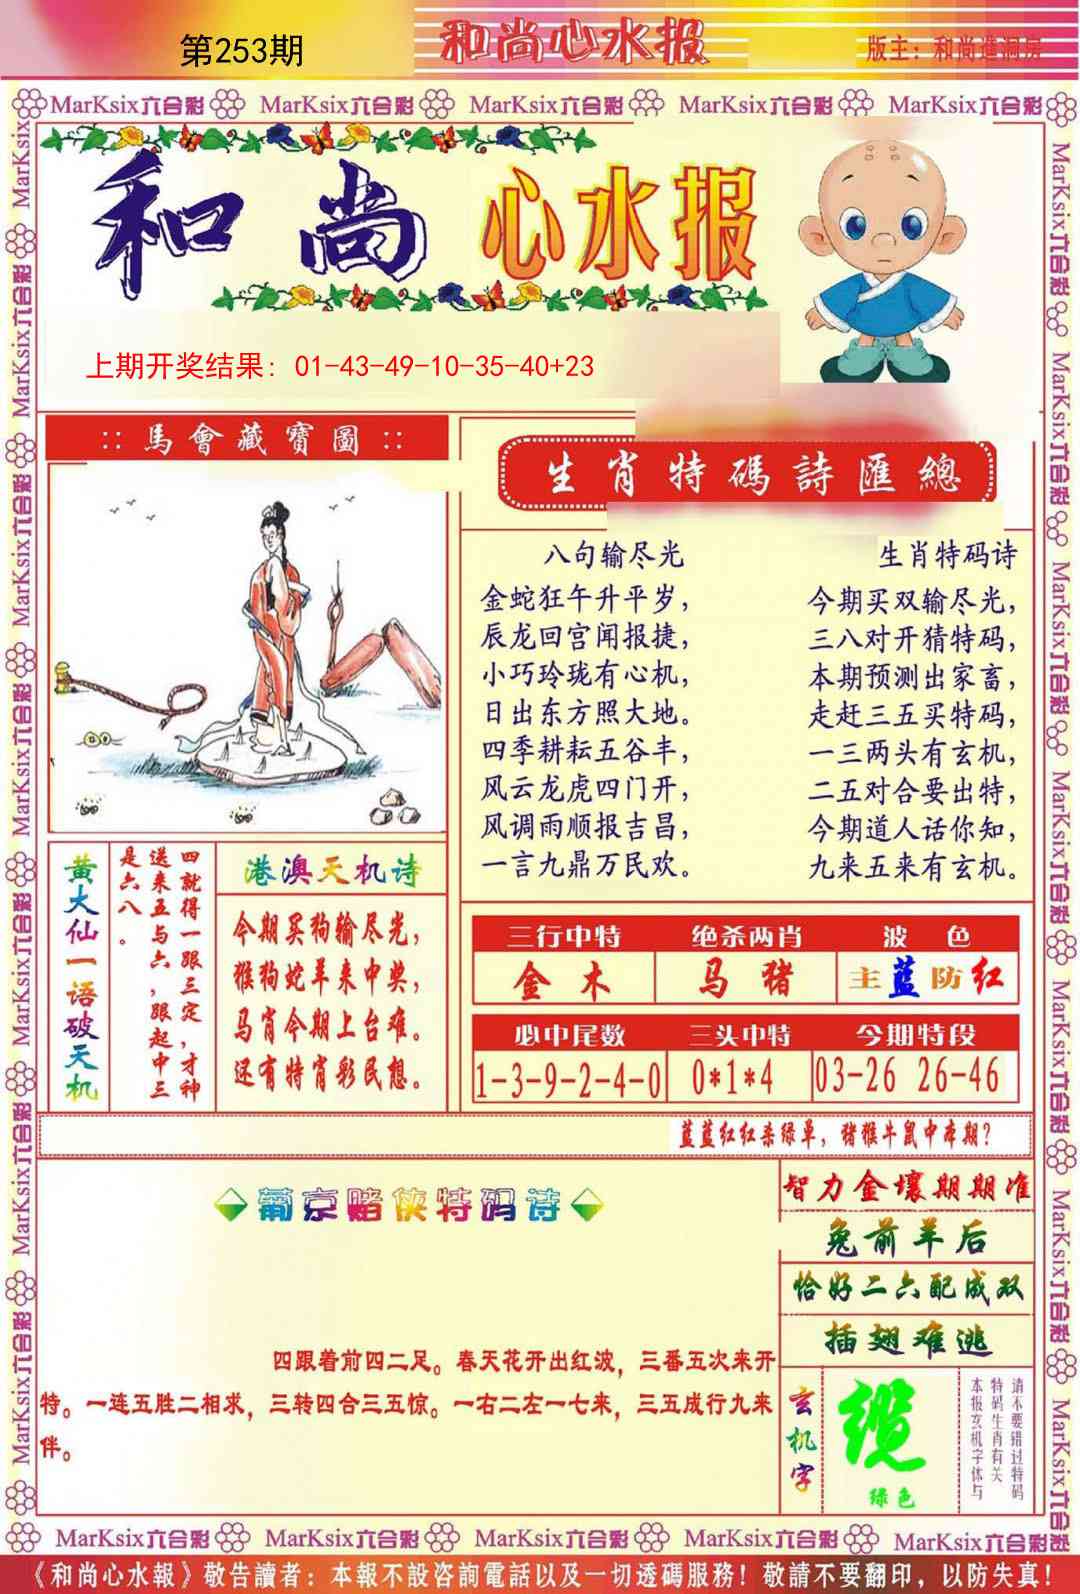 第253期
和尚心水报
版主：和尚進洞房
MarKsix六合彩 MarKsix六合彩 MarKsix六合彩 MarKsix六合彩 MarKsix六合彩
和尚心水报
上期开奖结果：01-43-49-10-35-40+23
::馬會藏寶圖::
生肖特碼詩匯總
八句输尽光
金蛇狂午升平岁，
辰龙回宫闻报捷，
小巧玲珑有心机，
日出东方照大地。
四季耕耘五谷丰，
风云龙虎四门开，
风调雨顺报吉昌，
一言九鼎万民欢。
生肖特码诗
今期买双输尽光，
三八对开猜特码，
本期预测出家畜，
走赶三五买特码，
一三两头有玄机，
二五对合要出特，
今期道人话你知，
九来五来有玄机。
黄大仙一语破天机
四就得一跟三定，才神
送来五与六，跟起中三
是六八。
港澳天机诗
今期买狗输尽光，
猴狗蛇羊来中奖，
马肖今期上台难。
还有特肖彩民想。
三行中特 绝杀两肖 波色
金木 马猪 主蓝防红
必中尾数 三头中特 今期特段
1-3-9-2-4-0 0*1*4 03-26 26-46
蓝蓝红红杀绿单，猪猴牛鼠中本期？
葡京赌侠特码诗
四跟着前四二足。春天花开出红波，三番五次来开
特。一连五胜二相求，三转四合三五惊。一右二左一七来，三五成行九来
伴。
智力金壤期期准
兔前羊后
恰好二六配成双
插翅难逃
玄机字
缆
绿色
请不要错过特码
特码生肖有关
本报玄机字体与
MarKsix六合彩 MarKsix六合彩 MarKsix六合彩 MarKsix六合彩 MarKsix六合彩
《和尚心水報》敬告讀者：本報不設咨詢電話以及一切透碼服務！敬請不要翻印，以防失真！